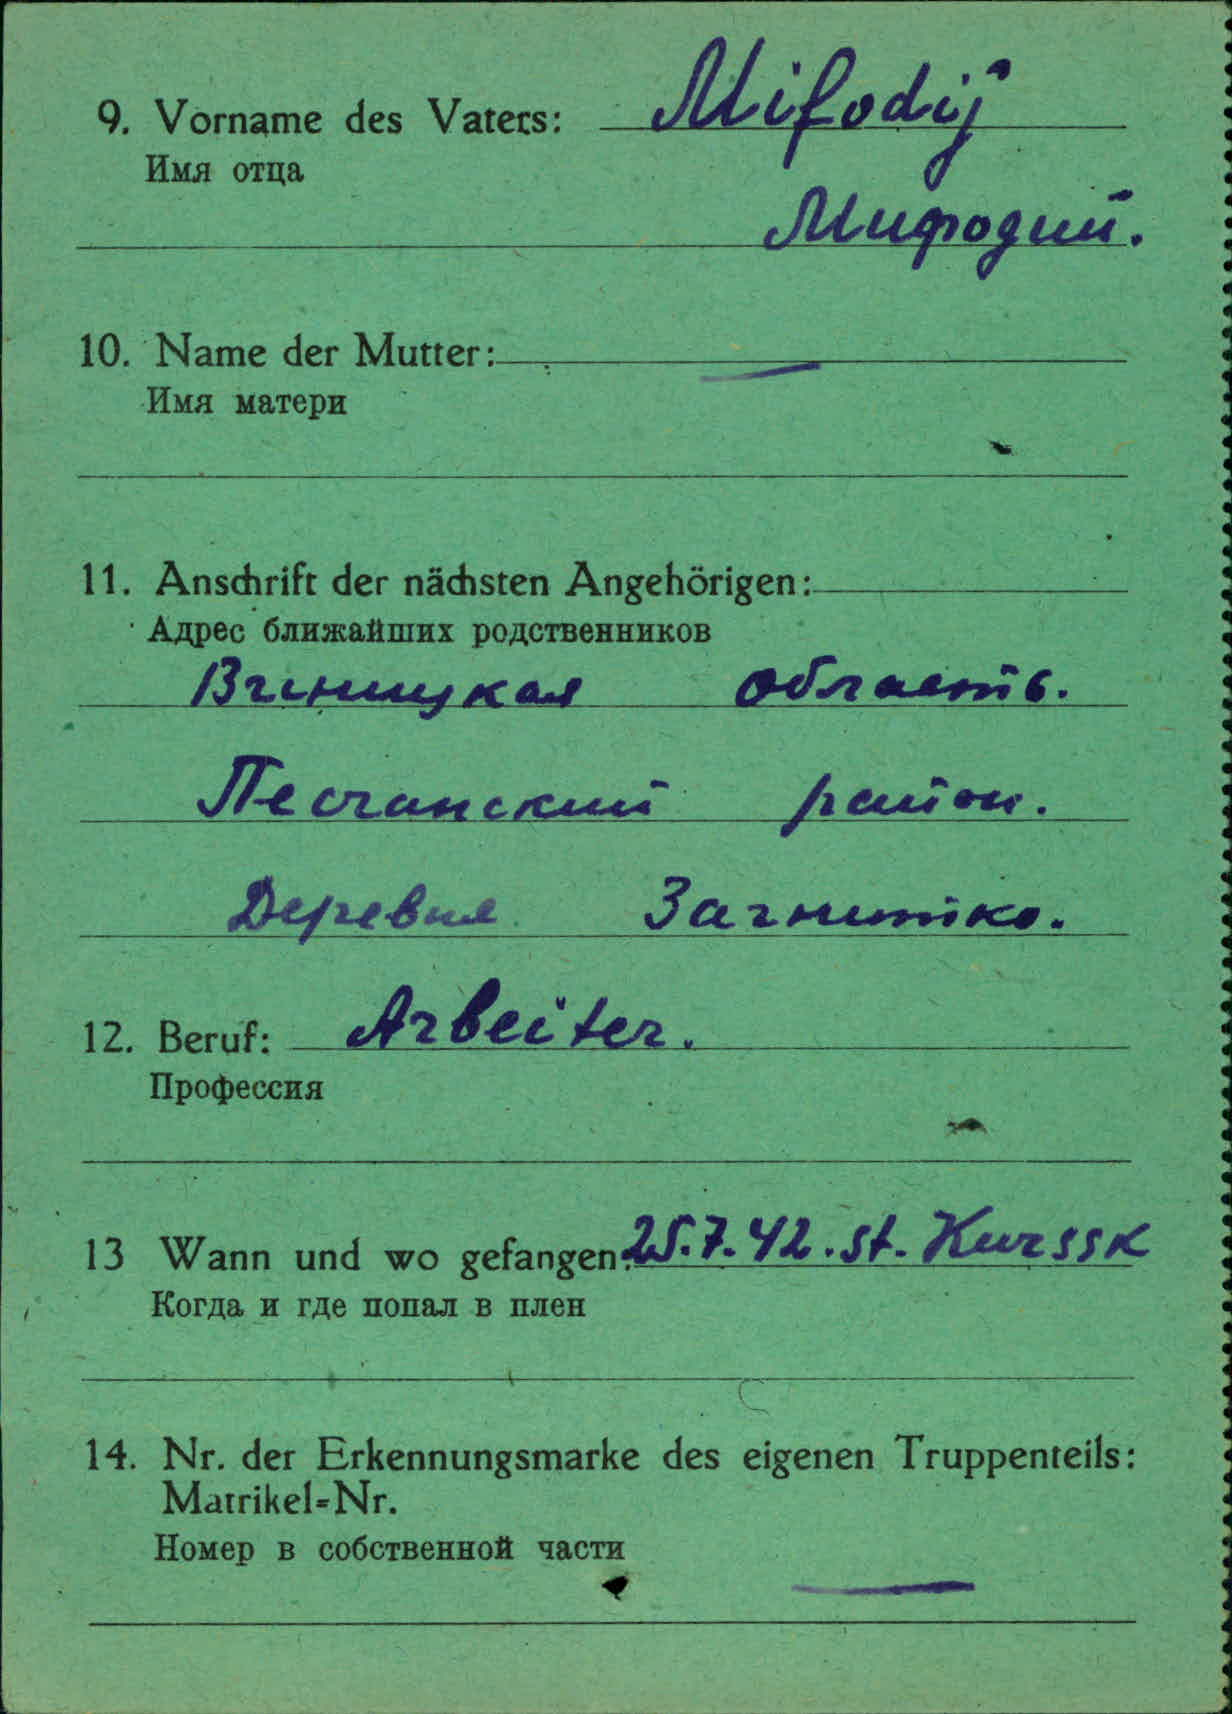 9. Vorname des Vaters: Mifodij
Имя отца
Мифодий.
10. Name der Mutter: —
Имя матери
11. Anschrift der nächsten Angehörigen:
Адрес ближайших родственников
Вгиницкая область.
Песчанский район.
Деревня Загнитко.
12. Beruf: Arbeiter.
Профессия
13 Wann und wo gefangen: 25.7.42. St. Kurssk
Когда и где попал в плен
14. Nr. der Erkennungsmarke des eigenen Truppenteils:
Matrikel=Nr.
Номер в собственной части
—